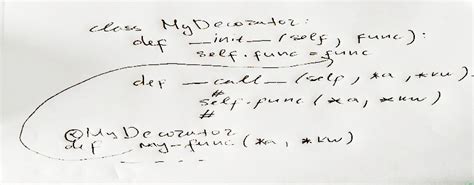 class MyDecorator:
def __init__(self, func):
self.func = func
def __call__(self, *a, *kw):
#
self.func(*a, *kw)
#
@MyDecorator
def my-func(*a, *kw)
- - - - -